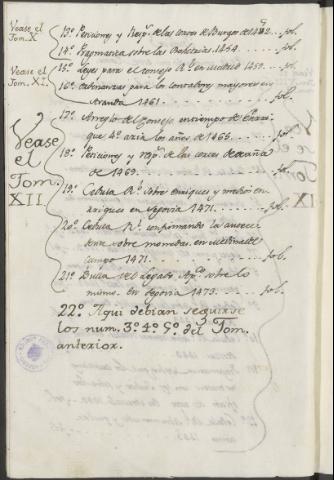 Vease el Tom. X.
13.º Peticiones y resp.ᵗ de las cortes de Burgos de 1452 . . fol.
14.º Pragmatica sobre las Behetrias. 1454 . . . fol.
Vease el Tom. XI.
15.º Leyes para el consejo R.ˡ en Madrid 1459 . . . fol.
16.º Ordenanzas para los contadores mayores en
Aranda 1461 . . . fol.
Vease el Tom. XII.
17.º Arreglo del Consejo en tiempo de Enri-
que 4.º acia los años de 1465 . . . fol.
18.º Peticiones y resp.ᵗ de las cortes de Ocaña
de 1469 . . . fol.
19.º Cedula R.ˡ sobre enriques y medios en-
riques en Segovia 1471 . . . fol.
20.º Cedula R.ˡ confirmando la antece-
dente sobre monedas en Medina del
Campo 1471 . . . fol.
21.º Bula del Legado Ap.ᶜᵒ sobre lo
mismo en Segovia 1473 . . . fol.
22.º Aqui debian seguirse
los num. 3.º 4.º 5.º del Tom.
anterior.